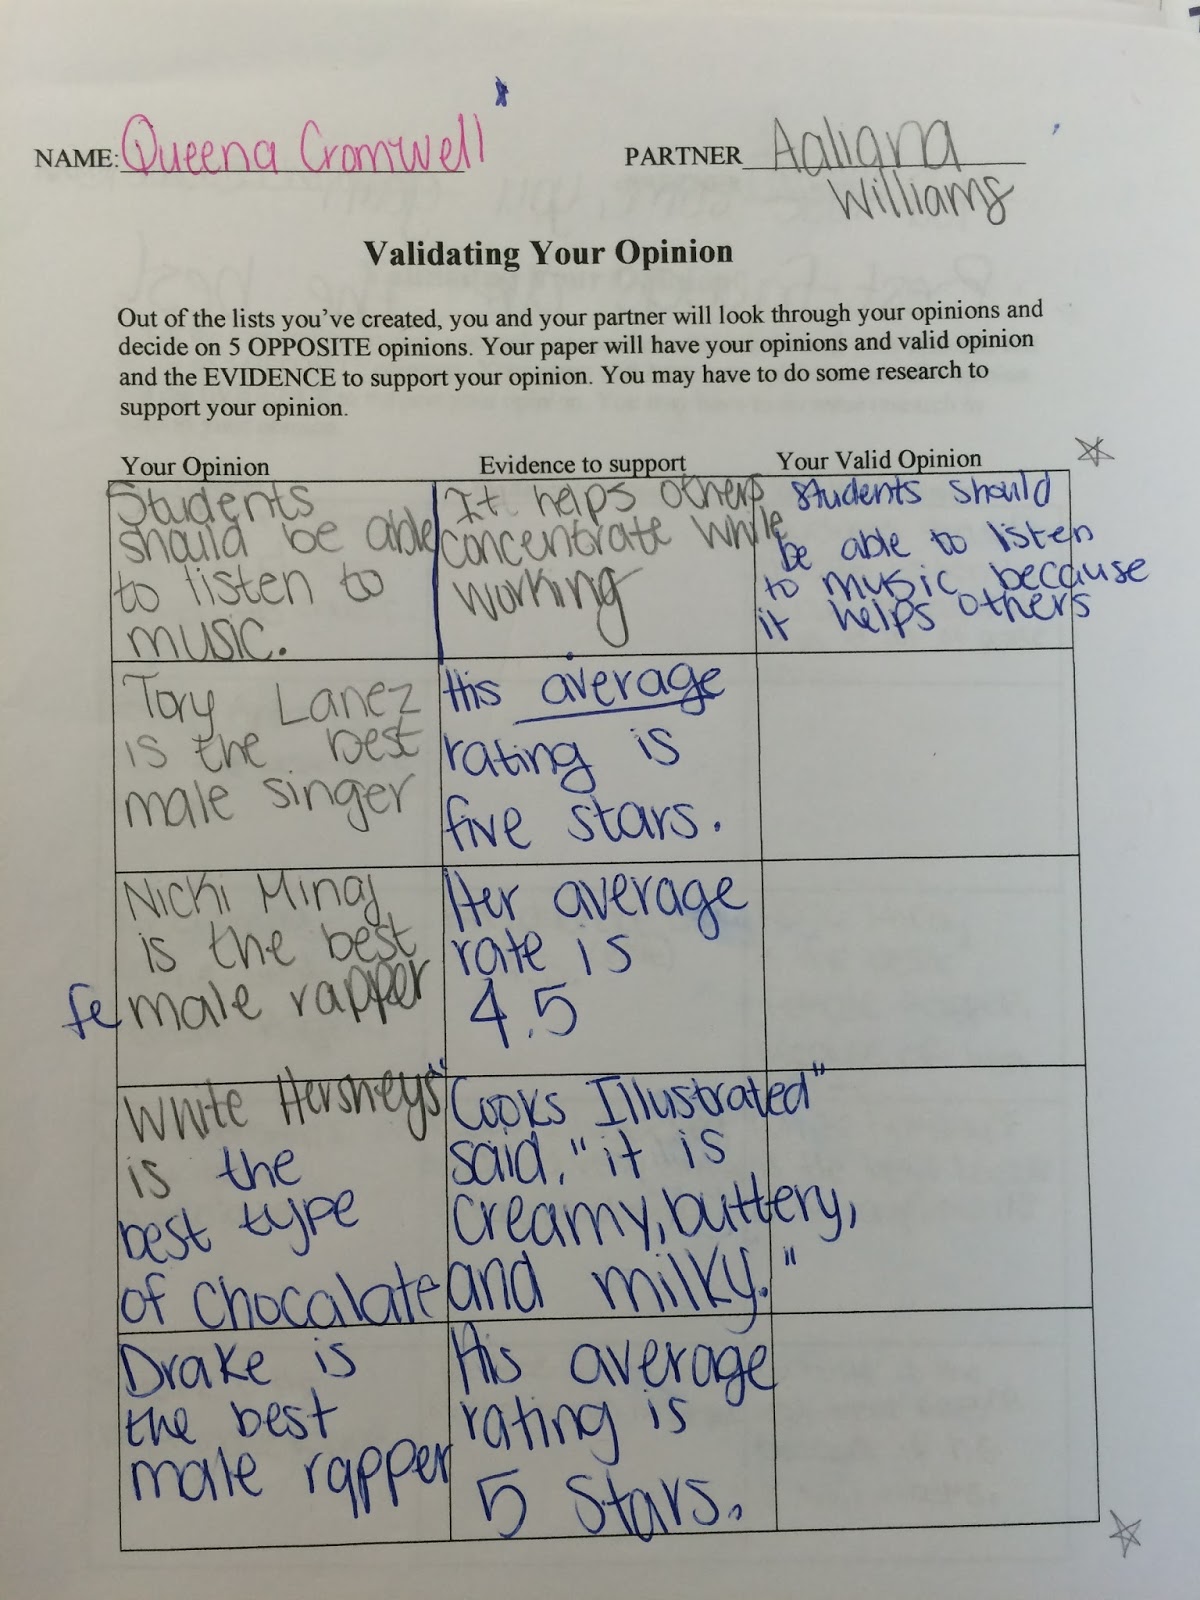 NAME: Queena Cromwell PARTNER Aaliana
Williams
Validating Your Opinion
Out of the lists you've created, you and your partner will look through your opinions and
decide on 5 OPPOSITE opinions. Your paper will have your opinions and valid opinion
and the EVIDENCE to support your opinion. You may have to do some research to
support your opinion.
Your Opinion Evidence to support Your Valid Opinion
Students
should be able
to listen to
music.
It helps others
concentrate while
working
students should
be able to listen
to music because
it helps others
Tory Lanez
is the best
male singer
His average
rating is
five stars.
Nicki Minaj
is the best
female rapper
Her average
rate is
4.5
White Hersheys
is the
best type
of chocalate
"Cooks Illustrated"
said, "it is
creamy, buttery,
and milky."
Drake is
the best
male rapper
His average
rating is
5 stars.